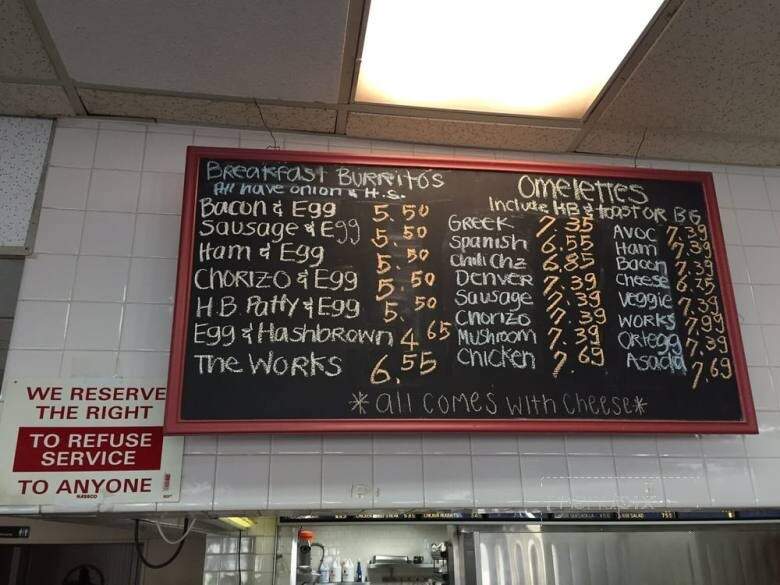 Breakfast Burritos
All have onion & H.S.
Bacon & Egg 5.50
Sausage & Egg 5.50
Ham & Egg 5.50
Chorizo & Egg 5.50
H.B. Patty & Egg 5.50
Egg & Hashbrown 4.65
The Works 6.55
Omelettes
Include HB & toast or B&G
Greek 7.35
Spanish 6.55
Chili Chz 6.85
Denver 7.39
Sausage 7.39
Chorizo 7.39
Mushroom 7.39
Chicken 7.69
Avoc 7.39
Ham 7.39
Bacon 7.39
Cheese 6.25
Veggie 7.39
Works 7.99
Ortega 7.39
Asada 7.69
*all comes with cheese*
WE RESERVE
THE RIGHT
TO REFUSE
SERVICE
TO ANYONE